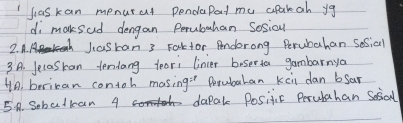 1 Jlaskan menurut pendapat mu apakah yg
di maksud dengan Perubahan Sosial
2. A. Jlaskan 3 faktor Pendorong Perubahan Sosial
3 A. Jelaskan tentang teori linier beserta gambarnya
4 A. berikan contoh masing" Perubahan Kcil dan bSar
5 A. Sebutkan 4 dapak Positif Perubahan Sosial